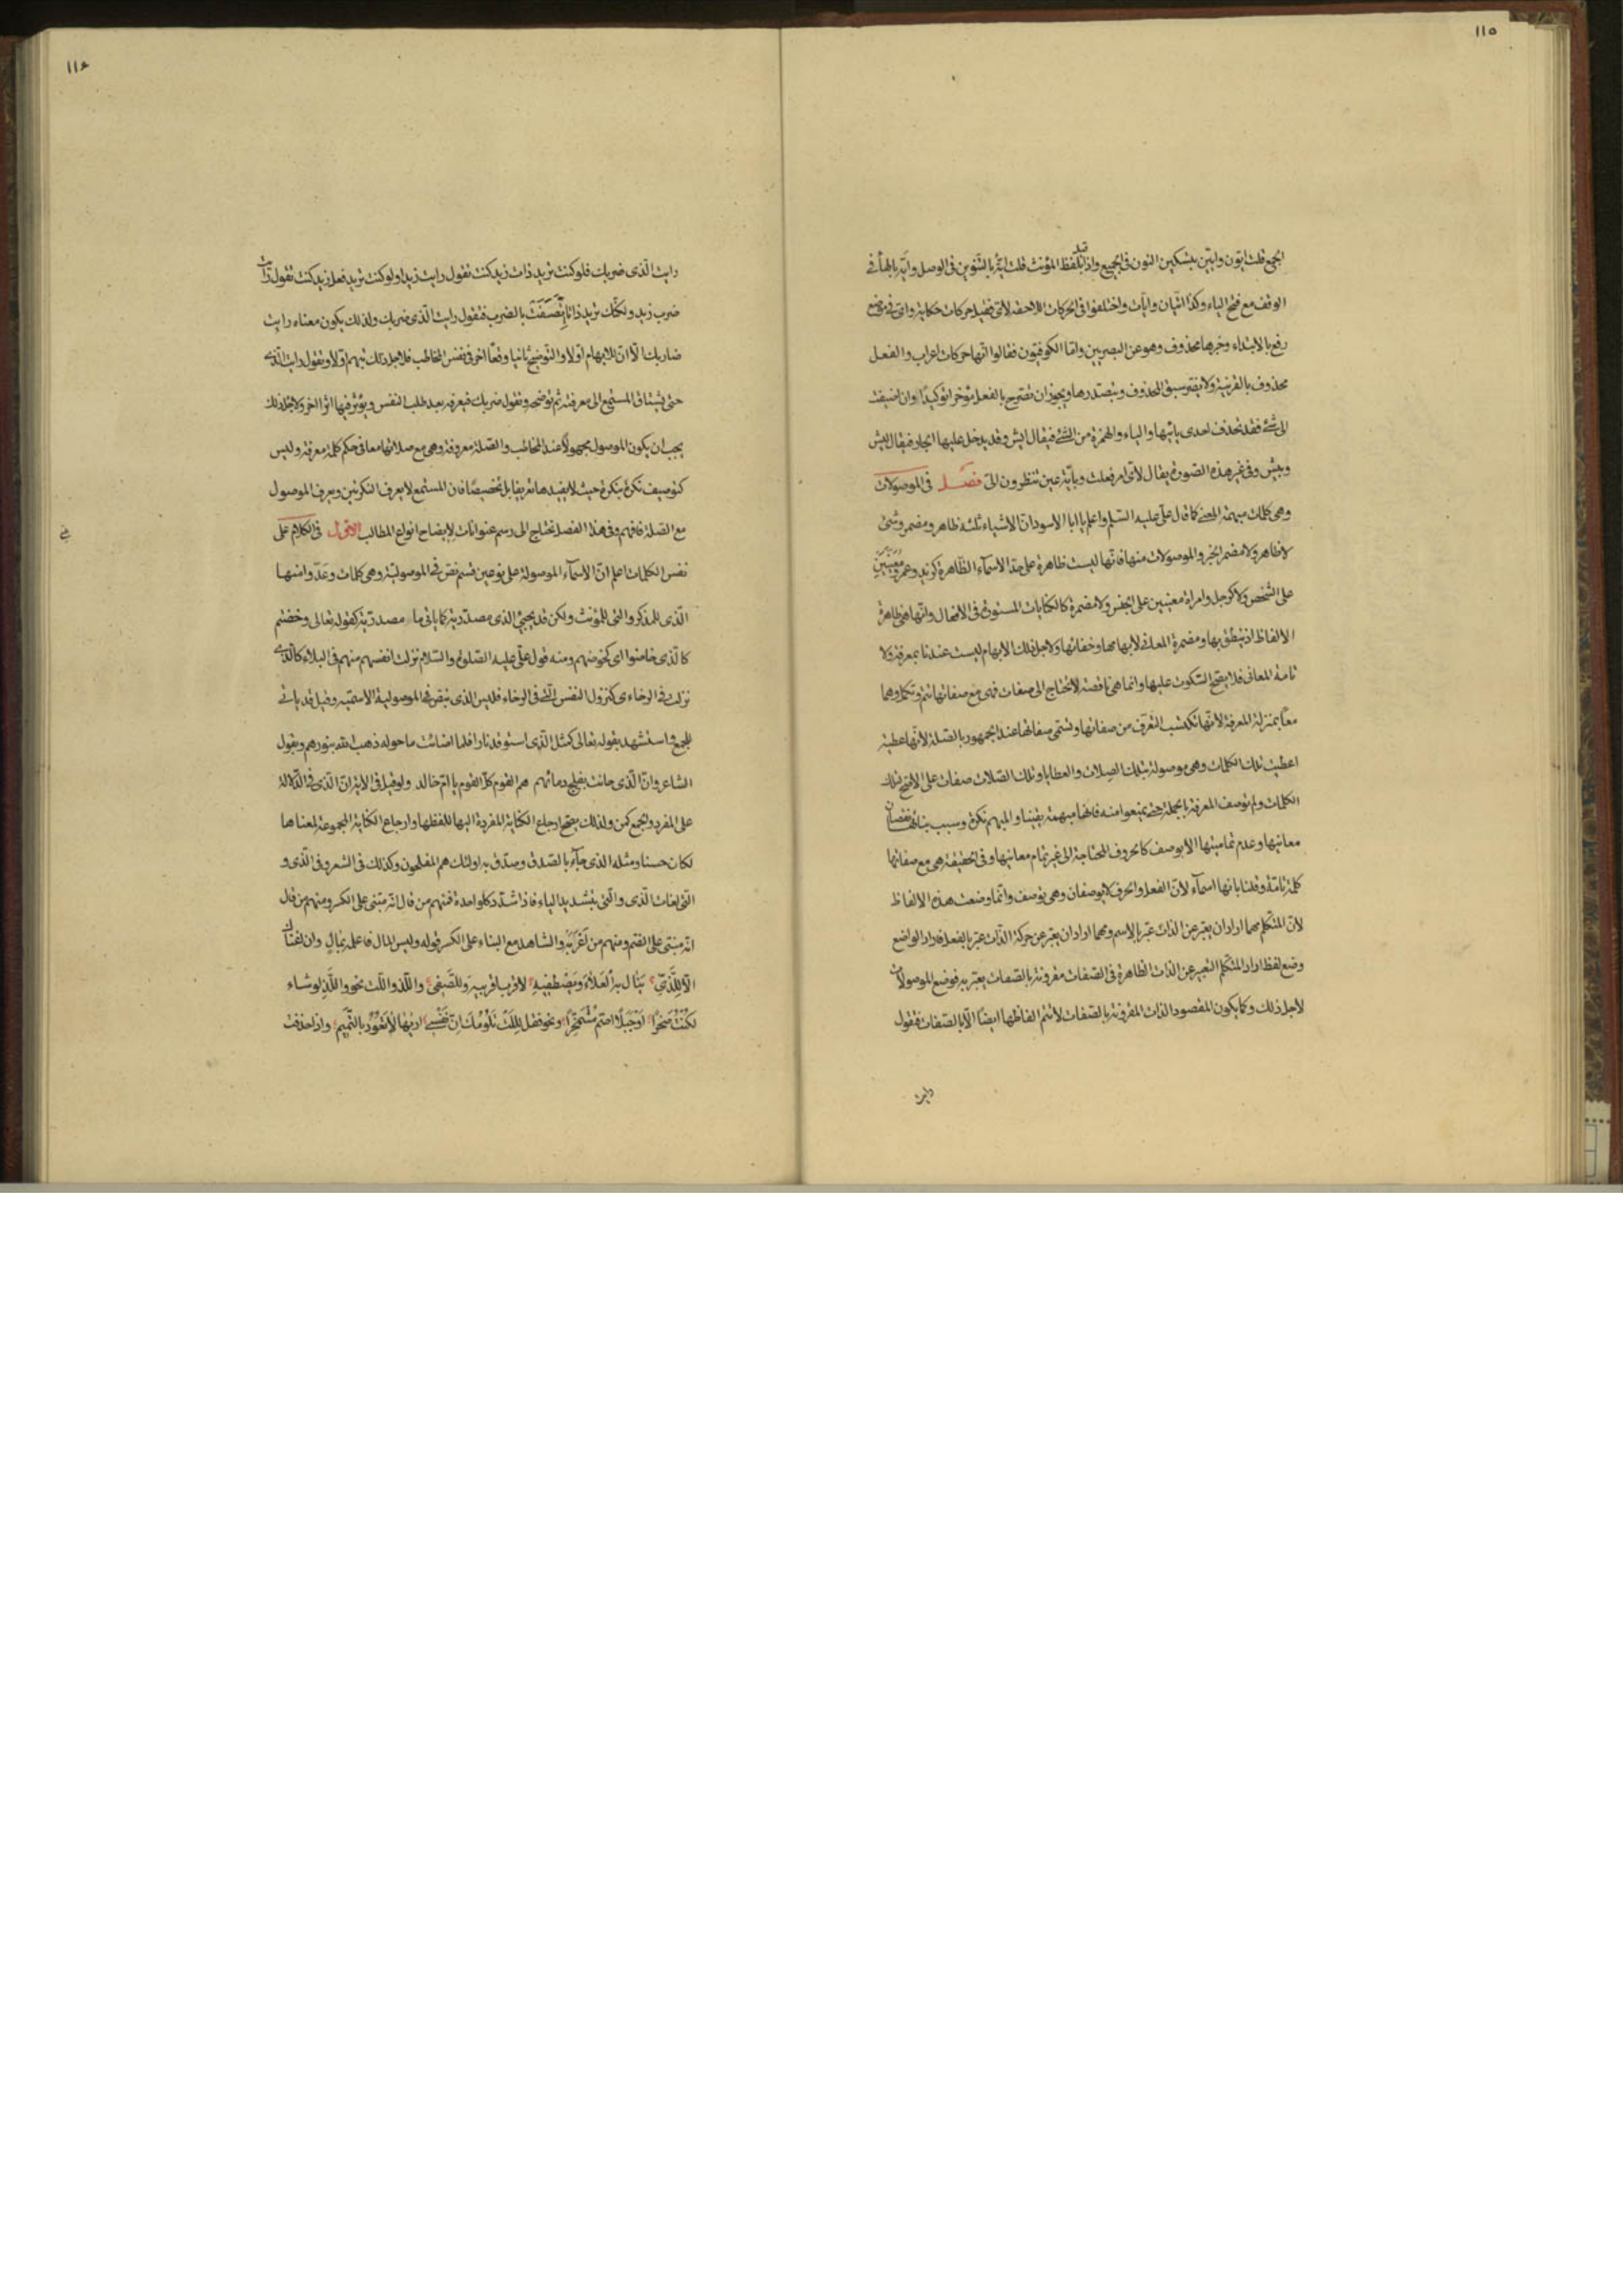 ١١٥
الجمع قلت ايّون وايّين بتسكين النون فى الجميع واذا قيد بلفظ المؤنث قلت ايّة بالتنوين فى الوصل وايّه بالهاء فى
الوقف مع فتح الياء وكذا ايّتان وايّات واختلفوا فى الحركات اللاحقه لاىّ فقيل حركات حكاية واىّ فى موضع
رفع بالابتداء وخبرها محذوف وهو عن البصريين وامّا الكوفيّون فقالوا انّها حركات اعراب والفعل
محذوف بالقرينة ولا يضرّ سبق المحذوف وبتصدرها ويجوز ان تصرح بالفعل مؤخرا توكيدًا وان اضيفت
الى شئ فقد تحذف احدى يائيها والياء والهمزة من الشئ فيقال ايش وقد يدخل عليها الجار فيقال لايش
وبيش وفى غير هذه الصورة يقال لاىّ امر فعلت وبايّة عين تنظرون الىّ فصل فى الموصولات
وهى كلمات مبهمة المعنى كما قال علىّ عليه السّلم واعلم يا ابا الاسود انّ الاشياء ثلثة ظاهر ومضمر وشئ
لا ظاهر ولا مضمر الخبر والموصولات منها فانّها ليست ظاهرة على حدّ الاسمآء الظّاهرة كزيد وعمرو معينين
على الشخص ولا كرجل وامراة معينين على الجنس ولا مضمرة كالكنايات المستورة فى الافعال وانّها هى ظاهرة
الالفاظ اذ ينطق بها ومضمرة المعانى لابهامها وخفائها ولاجل ذلك الابهام ليست عندنا بمعرفة ولا
تامة المعانى فلا يصحّ السّكوت عليها وانما هى ناقصة لا تحتاج الى صفات فهى مع صفاتها تتم وتكمل وهما
معًا بمنزلة المعرفة لانّها تكتسب التعرّف من صفاتها وتسمّى صفاتها عند الجمهور بالصّلة لانّها عطية
اعطيت تلك الكلمات وهى موصولة بتلك الصلات والعطايا وتلك الصّلات صفات على الاصح لتلك
الكلمات ولم توصف المعرفة بالجملة حتى يمنعوا منه فانها مبهمة يقينا والمبهم نكرة وسبب بنائها نقصان
معانيها وعدم تماميتها الا بوصف كالحروف المحتاجة الى غير تمام معانيها وفى الحقيقة هى مع صفاتها
كلمة تامّة وقلنا بانها اسمآء لانّ الفعل والحرف لا يوصفان وهى توصف وانّما وضعت هذه الالفاظ
لانّ المتكلّم مهما اراد ان يعبّر عن الذات عبّر بالاسم ومهما اراد ان يعبّر عن حركة الذّات عبّر بالفعل فاراد الواضع
وضع لفظ اراد المتكلّم التعبير عن الذات الظاهرة فى الصّفات مقرونة بالصّفات يعبّر به فوضع الموصولات
لاجل ذلك وكما يكون المقصود الذات المقرونة بالصّفات لا تتم الفاظها ايضًا الّا بالصّفات فتقول
رايت
١١٦
رايت الّذى ضربك فلو كنت تريد ذات زيد كنت تقول رايت زيدا ولو كنت تريد فعل زيد كنت تقول رايت
ضرب زيد ولكنّك تريد ذاتا اتّصفت بالضرب فتقول رايت الّذى ضربك ولذلك يكون معناه رايت
ضاربك الّا انّ للابهام اوّلا والتّوضيح ثانيا وقعًا اخر فى نفس المخاطب فلاجل ذلك تبهم اوّلا وتقول رايت الّذى
حتى يشتاق المستمع الى معرفته ثم توضحه وتقول ضربك فيعرفه بعد طلب النفس ويؤثر فيها اثرا اخر ولاجل ذلك
يجب ان يكون الموصول مجهولًا عند المخاطب والصّلة معروفة وهى مع صلاتها معا فى حكم كلمة معرفة وليس
كتوصيف نكرة بنكرة حيث لا يفيدها تعريفا بل تخصيصًا فان المستمع لا يعرف النكرتين ويعرف الموصول
مع الصّلة فافهم وفى هذا الفصل نحتاج الى رسم عنوانات لايضاح انواع المطالب الاوّل فى الكلام على
نفس الكلمات اعلم انّ الاسمآء الموصولة على نوعين قسم نصّ فى الموصوليّة وهى كلمات وعَدّوا منها
الّذى للمذكر والتى للمؤنث ولكن قد يجئ الذى مصدريّة كما ياتى ما مصدريّة كقوله تعالى وخضتم
كالّذى خاضوا اى كخوضهم ومنه قول علىّ عليه الصّلوة والسّلام نزلت انفسهم منهم فى البلاء كالّذى
نزلت فى الرخاء اى كنزول النفس الّتى فى الرخاء فليس الذى بنصّ فى الموصولية الاسميّة وقيل قد ياتى
للجمع واستشهد بقوله تعالى كمثل الّذى استوقد نارا فلما اضائت ما حوله ذهب الله بنورهم وبقول
الشاعر وانّ الّذى حانت بفلج دمائهم هم القوم كلّ القوم يا امّ خالد ولو قيل فى الاية انّ الّذى فى الدّلالة
على المفرد والجمع كمن ولذلك يصحّ ارجاع الكناية المفردة اليها للفظها وارجاع الكناية المجموعة لمعناها
لكان حسنا ومثله الذى جآء بالصّدق وصدّق به اولئك هم المفلحون وكذلك فى الشعر وفى الّذى و
الّتى لغات الّذى والّتى بتشديد الياء فاذا شدّد كلّ واحدة فمنهم من قال انّه مبنى على الكسر ومنهم من قال
انه مبنى على الضّم ومنهم من اَعْرَبَه والشاهد مع البناء على الكسر قوله وليس المال فاعلمه بمالٍ وان اغناك
الّا للّذىّ ينال به العلاء ويصطفيه لاقرب اقربيه وللصّفى والّلذ والّلت نحو والّلذ لو شاء
لكنت صخرًا او جبلًا اصمّ مشمخرًا ونحو فقل لِلّلت تلومك انّ نفسى اراها لا تعوّذ بالتّميم واذا حذفت